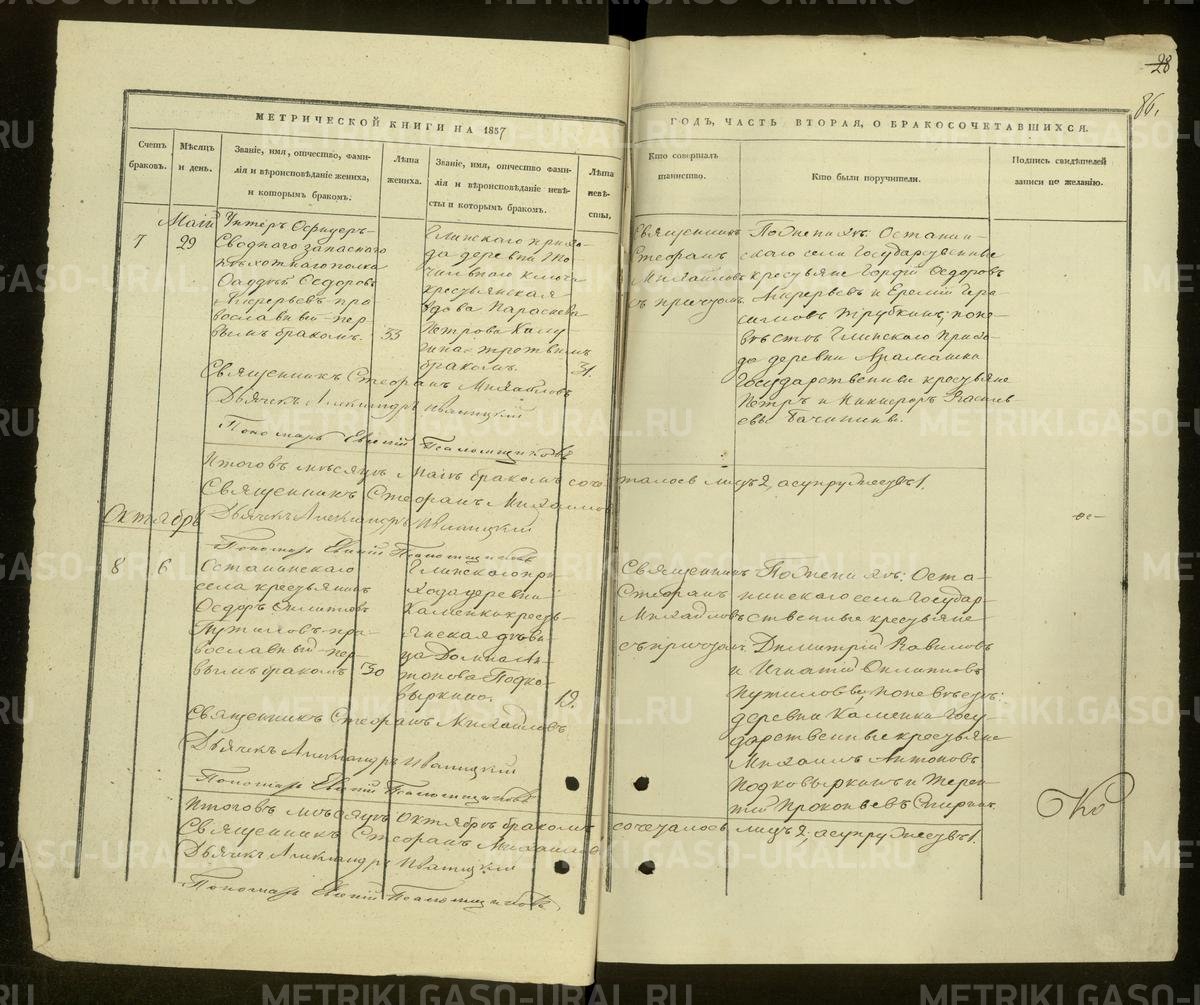 28
86.
МЕТРИЧЕСКОЙ КНИГИ НА 1857
ГОДЪ, ЧАСТЬ ВТОРАЯ, О БРАКОСОЧЕТАВШИХСЯ.
Счетъ
браковъ.
Мѣсяцъ
и день.
Званіе, имя, отчество, фами-
лія и вѣроисповѣданіе жениха,
и которымъ бракомъ.
Лѣта
жениха.
Званіе, имя, отчество фами-
лія и вѣроисповѣданіе невѣ-
сты и которымъ бракомъ.
Лѣта
невѣ-
сты.
Кто совершалъ
таинство.
Кто были поручители.
Подпись свидѣтелей
записи по желанію.
Май
7
29
Унтеръ Офицеръ
Своднаго запаснаго
пѣхотнаго полка
Фаддѣй Ѳедоровъ
пра-
вославный пер-
вымъ бракомъ.
33
Глинскаго прихо-
да деревни
ключа
крестьянская
вдова Параскева
Петрова
третьимъ
бракомъ.
31.
Священникъ
Стефанъ
Михайловъ
съ причтомъ.
По женихѣ: Останин-
скаго села Государственные
крестьяне Гордѣй Ѳедоровъ
и Еремѣй Гера-
симовъ Трубкинъ; по не-
вѣстѣ Глинскаго прихо-
да деревни Арамашка
Государственные крестьяне
Петръ и Никифоръ Василь-
евы
Священникъ Стефанъ Михайловъ
Дьячекъ Александръ Иваницкій
Пономарь Евгеній Псаломщиковъ
Итогоъ мѣсяцѣ Маіѣ бракомъ соче
талось лицъ 2, а супружествъ 1.
Священникъ Стефанъ Михайловъ
Дьячекъ Александръ Иваницкій
Пономарь Евгеній Псаломщиковъ
Октябрь
8
6
Останинскаго
села крестьянинъ
Ѳедоръ Филиповъ
Путиловъ пра-
вославный пер-
вымъ бракомъ
30
Глинскаго при-
хода деревни
Каменки кресть-
янская дѣви-
ца Домна Ан-
тонова Подко-
выркина.
19.
Священникъ
Стефанъ
Михайловъ
съ причтомъ.
По женихѣ: Оста-
нинскаго села Государ-
ственные крестьяне
Димитрій Вавиловъ
и Игнатій Филиповъ
Путиловы; по невѣстѣ:
деревни Каменки Госу
дарственные крестьяне
Михаилъ Антоновъ
Подковыркинъ и Терен-
тій Прокопьевъ Спиринъ.
Священникъ Стефанъ Михайловъ
Дьячекъ Александръ Иваницкій
Пономарь Евгеній Псаломщиковъ
Итогоъ мѣсяцѣ Октябрѣ бракомъ
сочеталось лицъ 2; а супружествъ 1.
Священникъ Стефанъ Михайловъ
Дьячекъ Александръ Иваницкій
Пономарь Евгеній Псаломщиковъ
METRIKI.GASO-URAL.RU